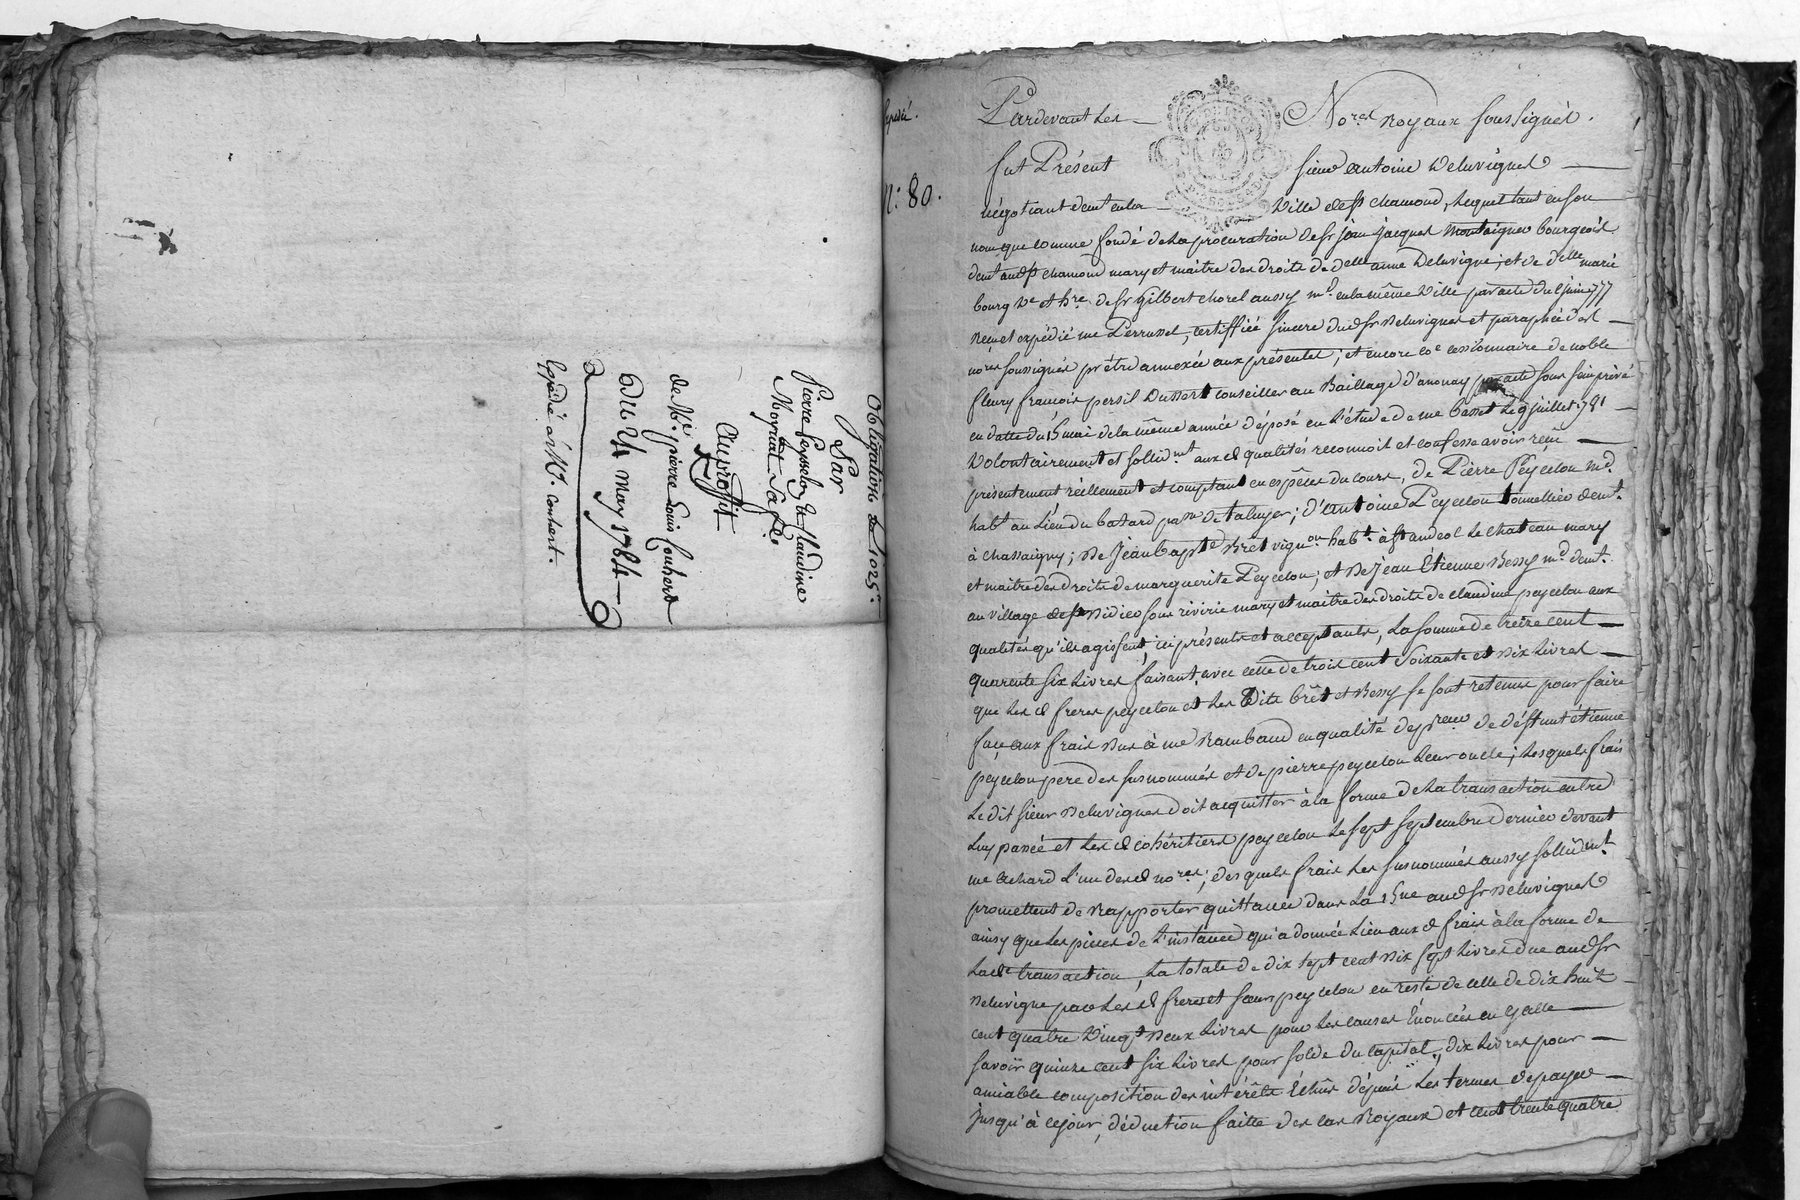 Obligation de 1025#
Par
Pierre Peysselon & Claudine
Moyriat Sa fe.
Au proffit
de Me. pierre Louis Conhert
Du 4 may 1784
Expédié à Mr. Conhert.
N: 80.
Pardevant Les Nores. Royaux soussignés.
fut Présent sieur antoine Deluvignes
négotiant demt. en la Ville de st chamond, Lequel tant en son
nom que comme fondé de La procuration de sr jean jacques Montaignes bourgeois
demt. aud st chamond mary et maitre des droits de delle anne Deluvigne; et de delle marie
bourg ve et hre. de sr Gilbert chorel aussy md. en la même Ville par acte du juin 1777
Reçu et expédié me Perrussel, certiffiée sincere dud sr Deluvignes et paraphée des
nores soussignés pr être annexée aux présentes; et encore ce cessionnaire de noble
fleury francois persil conseiller au Baillage d'anonay par acte sous sein privé
en datte du 15 mai de la même année déposé en L'étude de me basset Le 9 juillet 1781
Volontairement et sollidmt. aux d qualités reconnoit et confesse avoir reçu
présentement réellement et comptant en espêces du cours, de Pierre Peycelon md.
habt. au Lieu du batard psse de taluyer; d'antoine Peycelon tonnellier demt.
à chassaigny; de Jean bapte Bret vignon habt. à st andeol Le chateau mary
et maitre des droits de marguerite Peycelon; et de Jean Étienne Bessy md. demt.
au village de st Didier sous riviric mary et maitre des droits de claudine peycelon aux
qualités qu'ils agissent, ici présents et acceptants, La somme de treize cent
quarente six Livres faisant avec celle de trois cent soixante et dix Livres
que Les d freres peycelon et Les Dits brêt et Bessy se sont retenus pour faire
face aux frais dus à me Rambaud en qualité de preur de déffunt étienne
peycelon pere des susnommés et de pierre peycelon Leur oncle; Lesquels frais
Le dit sieur Deluvignes doit acquitter à la forme de La transaction entre
Luy passée et Les d cohéritiers peycelon Le sept septembre dernier devant
me Achard L'un des d nores.; desquels frais Les susnommés aussy sollidmt.
promettent de Rapporter quittance dans La 15ne aud sr Deluvignes
ainsy que Les pieces de L'instance qui a donnée Lieu aux d frais à la forme de
Lade transaction, La totale de dix sept cent dix sept Livres due aud sr
Deluvigne par Les d freres et sœurs peycelon en reste de celle de dix huit
cent quatre Vingt deux Livres pour Les causes Énoncées en ycelle
savoir quinze cent six Livres pour solde du capital, dix Livres pour
amiable composition des intérêts Échus dépuis Les termes de payer
jusqu'à ce jour, déduction faitte des cas Royaux et cent trente quatre